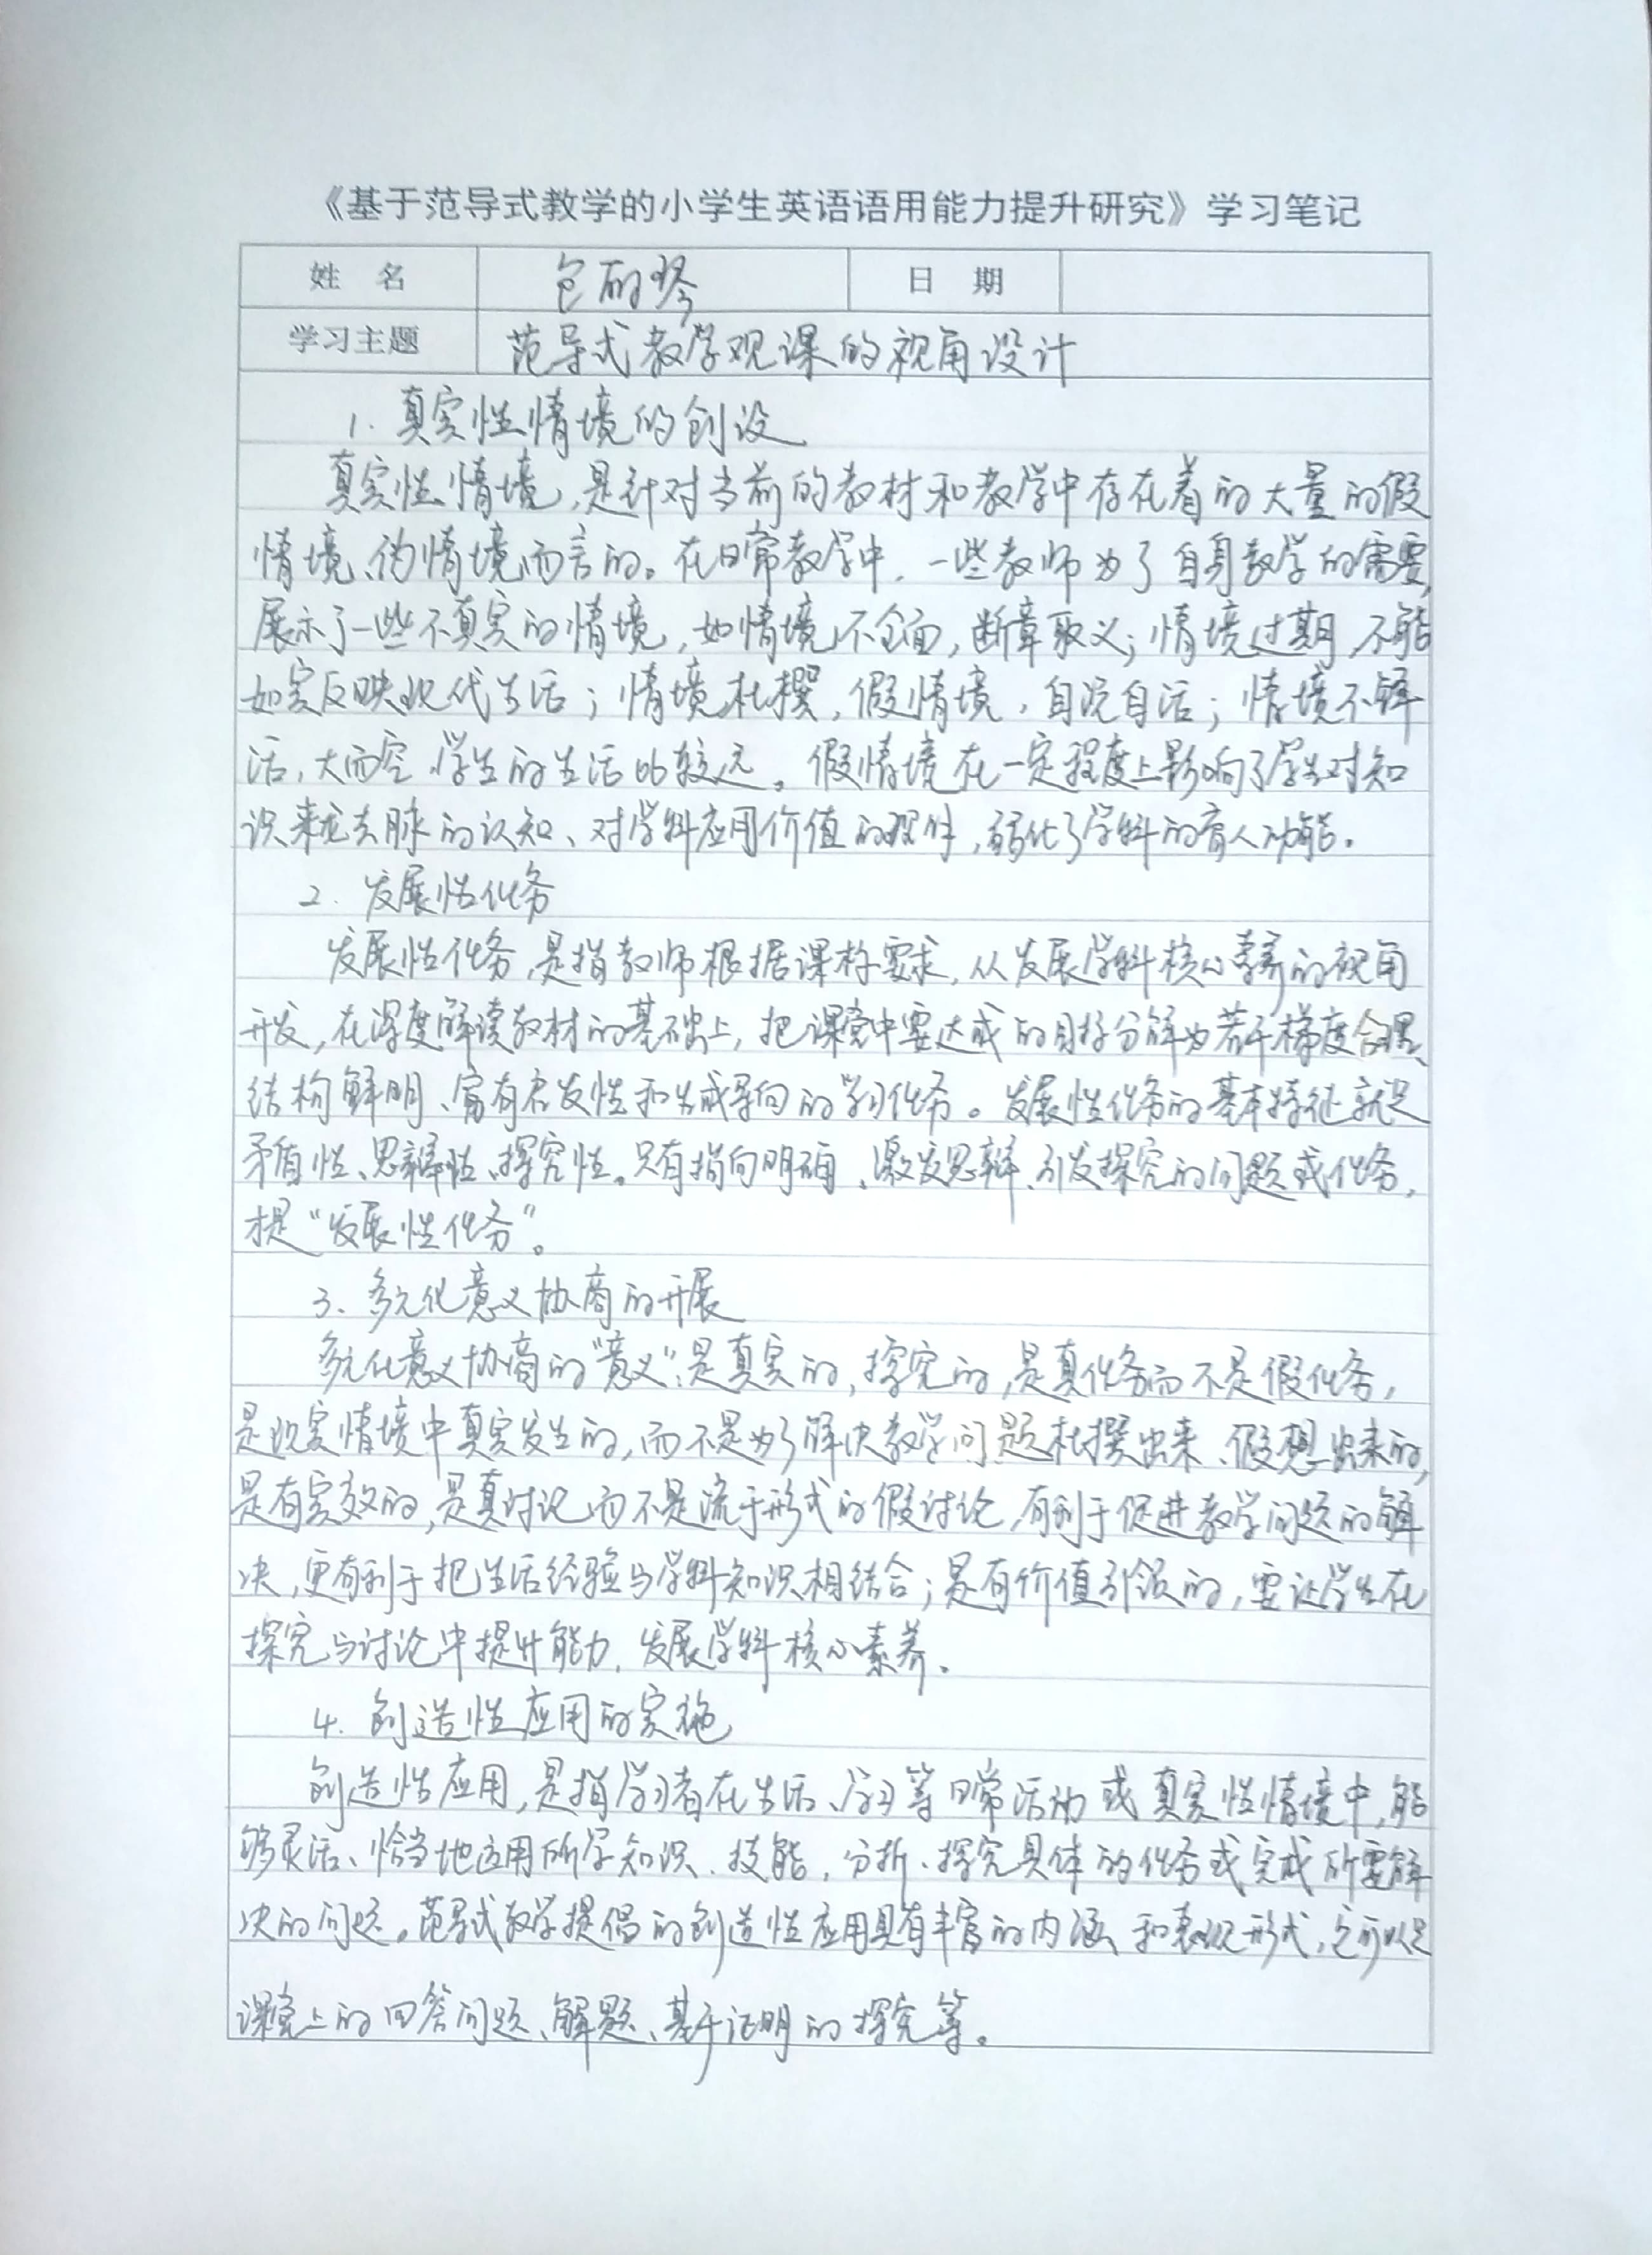 《基于范导式教学的小学生英语语用能力提升研究》学习笔记
姓 名 包丽琴 日 期
学习主题 范导式教学观课的视角设计
1. 真实性情境的创设
真实性情境，是针对当前的教材和教学中存在着的大量的假
情境、伪情境而言的。在日常教学中，一些教师为了自身教学的需要，
展示了一些不真实的情境，如情境不全面，断章取义；情境过期，不能
如实反映现代生活；情境杜撰，假情境，自说自话；情境不鲜
活，大而空，学生的生活比较远。假情境在一定程度上影响了学生对知
识来龙去脉的认知、对学科应用价值的理解，弱化了学科的育人功能。
2. 发展性任务
发展性任务，是指教师根据课标要求，从发展学科核心素养的视角
开发，在深度解读教材的基础上，把课堂中要达成的目标分解为若干梯度合理、
结构鲜明、富有启发性和生成导向的学习任务。发展性任务的基本特征就是
矛盾性、思辨性、探究性。只有指向明确、激发思辨、引发探究的问题或任务，
才是“发展性任务”。
3. 多元化意义协商的开展
多元化意义协商的“意义”：是真实的，探究的，是真任务而不是假任务，
是现实情境中真实发生的，而不是为了解决教学问题杜撰出来、假想出来的，
是有实效的，是真讨论而不是流于形式的假讨论，有利于促进教学问题的解
决，更有利于把生活经验与学科知识相结合；是有价值引领的，要让学生在
探究与讨论中提升能力，发展学科核心素养。
4. 创造性应用的实施
创造性应用，是指学习者在生活、学习等日常活动或真实性情境中，能
够灵活、恰当地应用所学知识、技能，分析、探究具体的任务或完成所要解
决的问题。范导式教学提倡的创造性应用具有丰富的内涵和表现形式，它可以是
课堂上的回答问题、解题、基于证明的探究等。